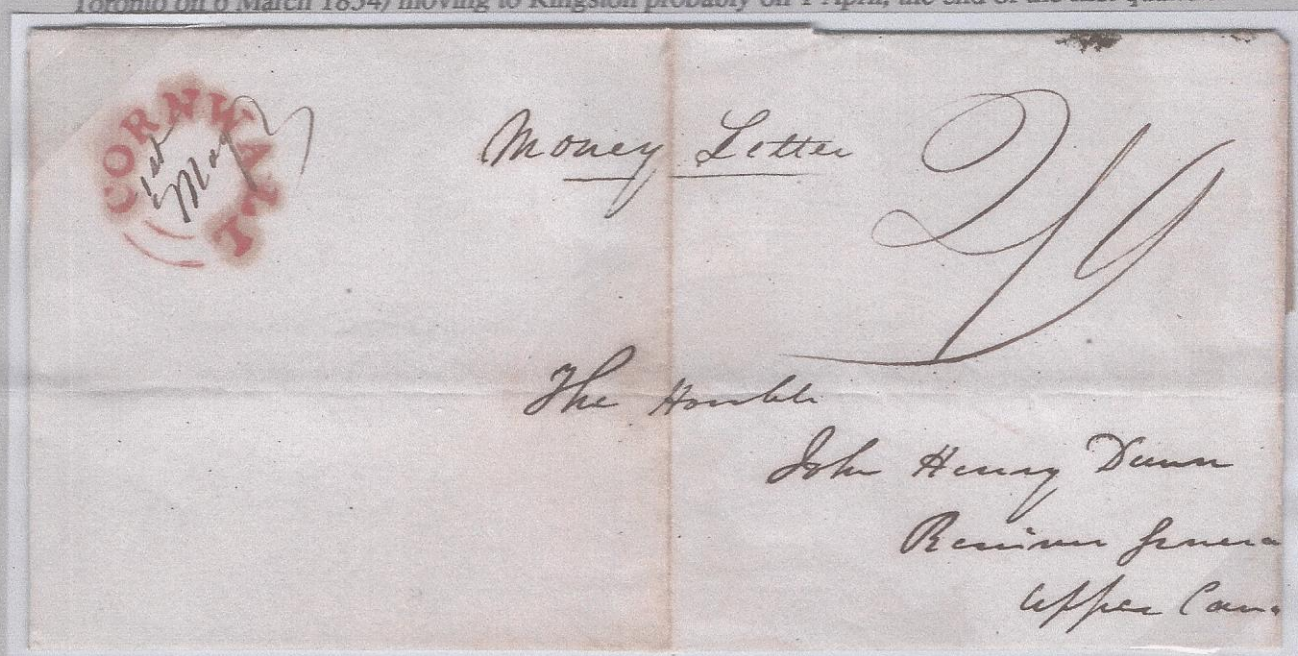 Toronto on 6 March 1834) moving to Kingston probably on 1 April, the end of the last
CORNWALL
1st
May
Money Letter
2/9
The Honble
John Henry Dunn
Receiver Genera
Upper Cana